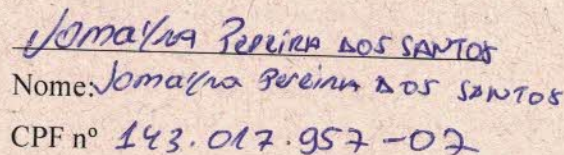 Jomayra Pereira dos Santos
Nome: Jomayra Pereira dos Santos
CPF nº 143.017.957-07